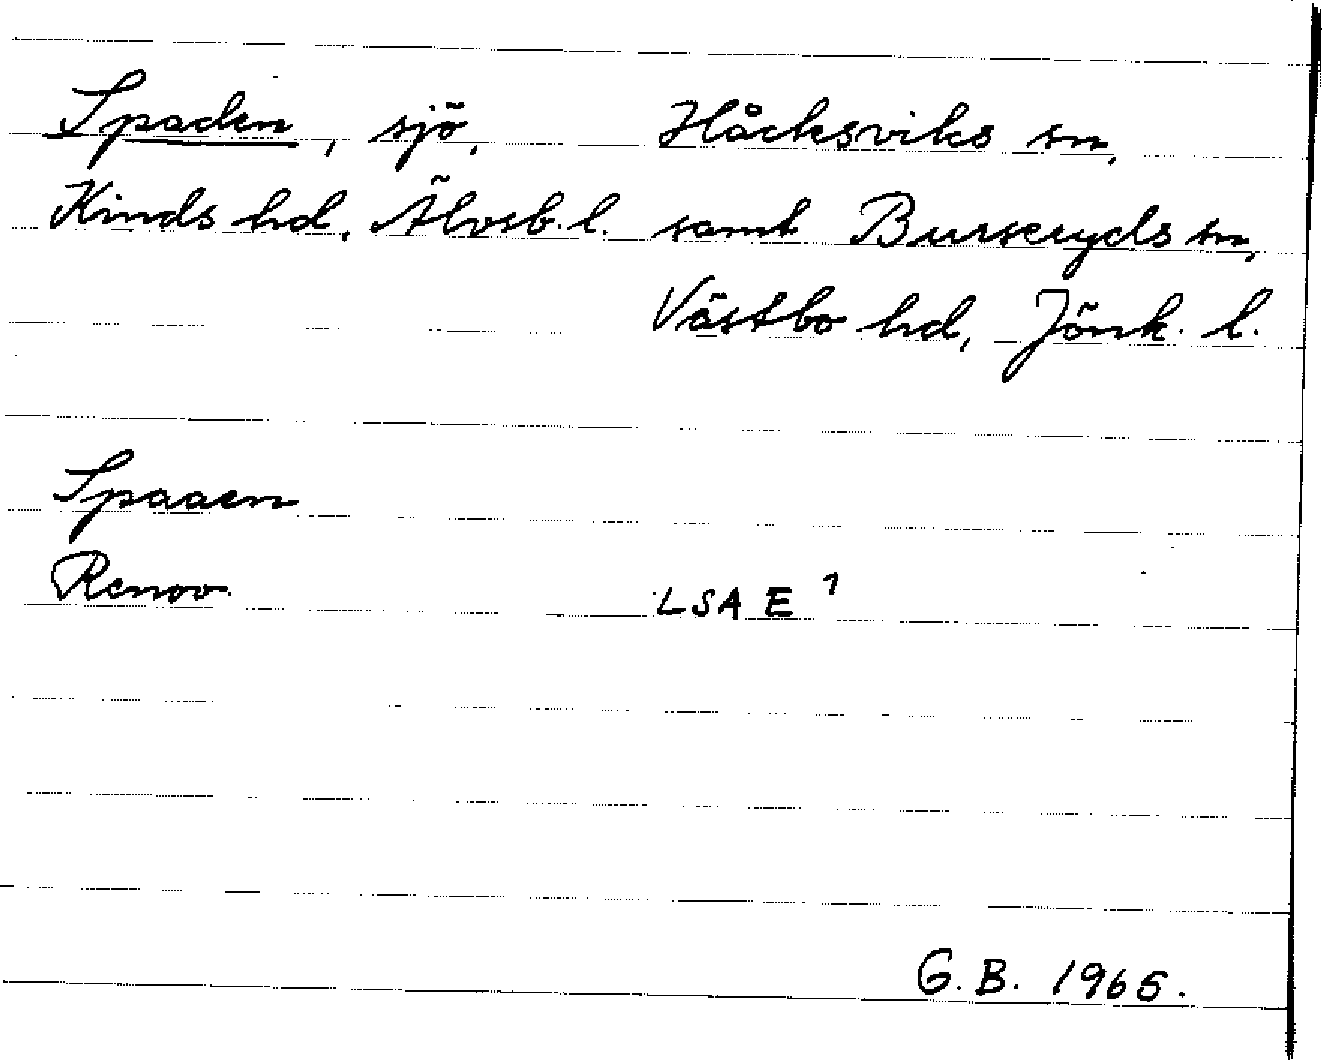 Spaden, sjö, Håcksviks sn,
Kinds hd, Älvsb. l. samt Burseryds sn,
Västbo hd, Jönk. l.
Spaaen
Renov. LSA E 1
G.B. 1966.